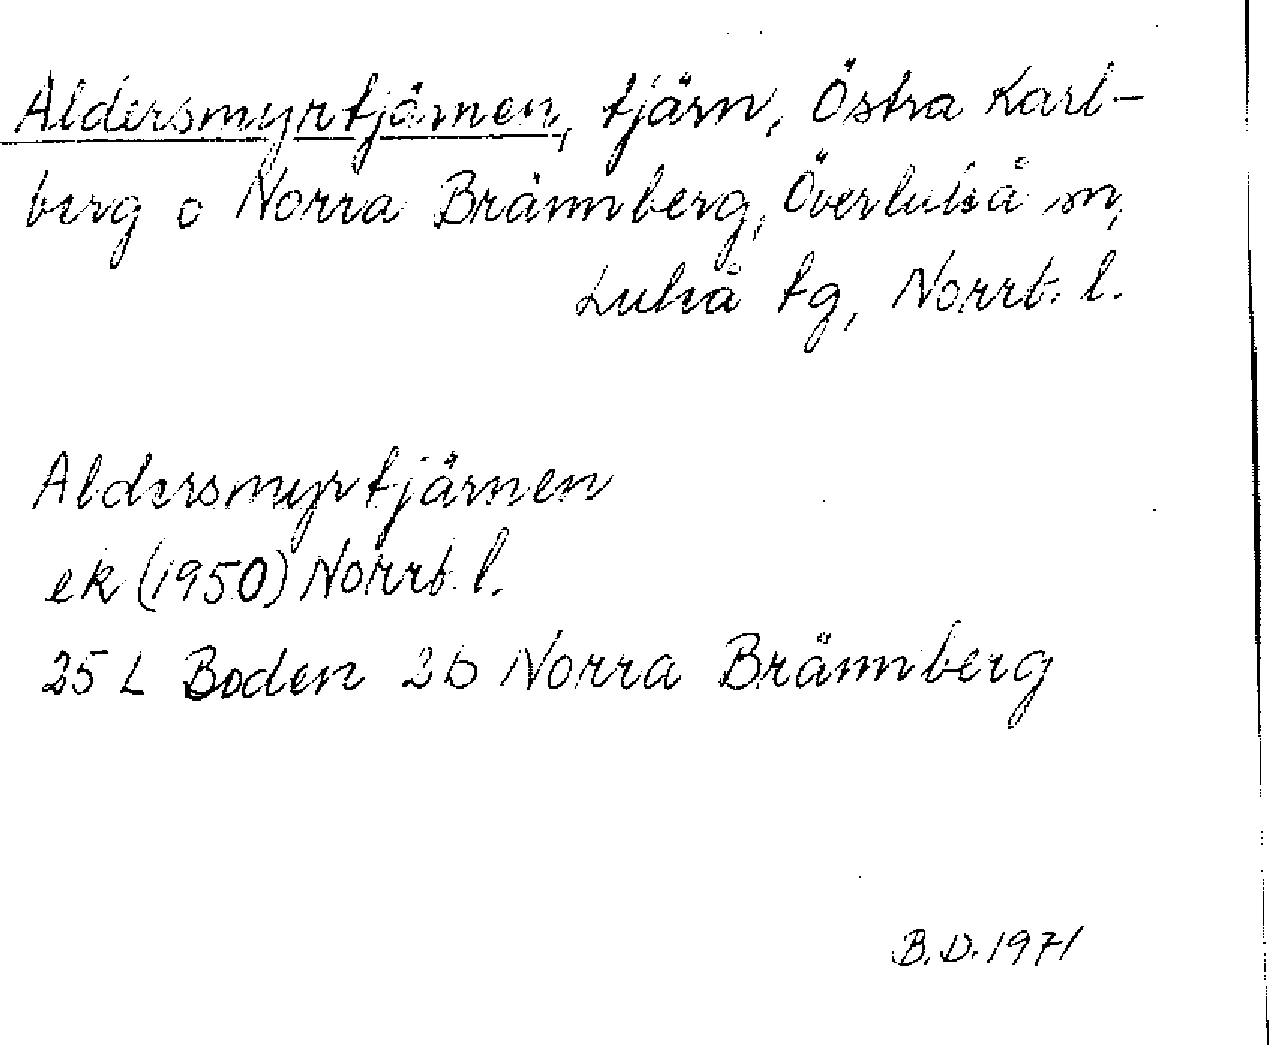 Aldersmyrtjärnen, tjärn, Östra Karl-
berg o Norra Brännberg, Överluleå sn,
Luleå tg, Norrb. l.
Aldersmyrtjärnen
ek (1950) Norrb. l.
25 L Boden 2b Norra Brännberg
B.D. 1971